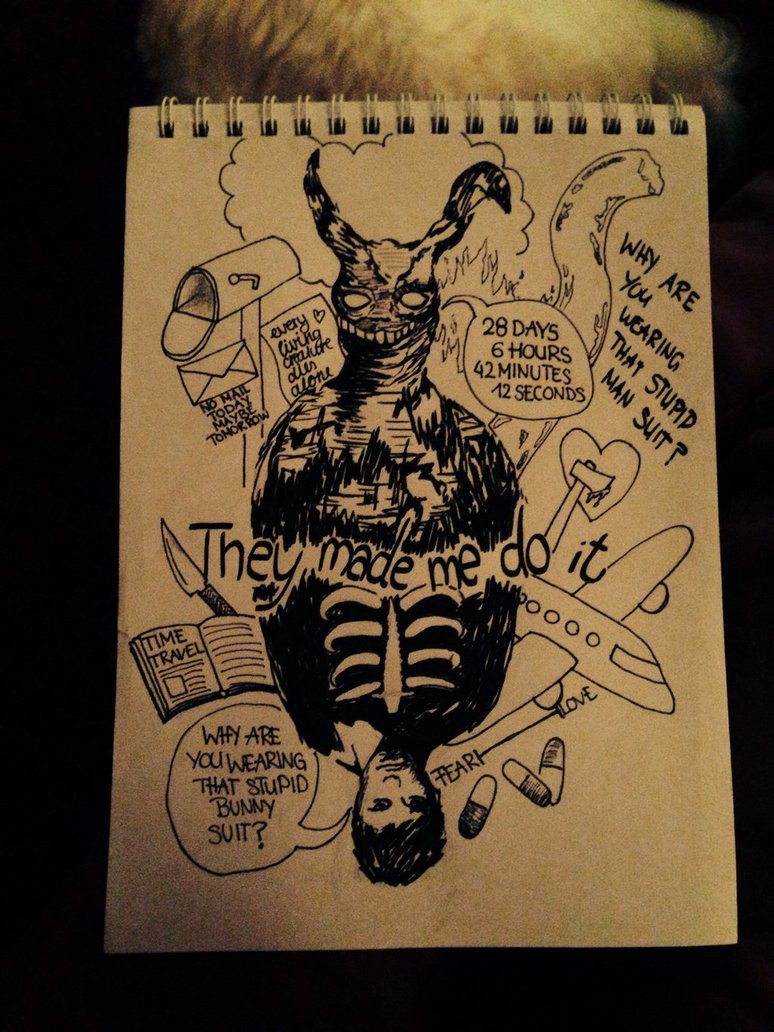 every
living
creature
dies
alone
28 DAYS
6 HOURS
42 MINUTES
12 SECONDS
WHY ARE
YOU
WEARING
THAT STUPID
MAN SUIT?
NO MAIL
TODAY
MAYBE
TOMORROW
They made me do it
TIME
TRAVEL
WHY ARE
YOU WEARING
THAT STUPID
BUNNY
SUIT?
FEAR
LOVE